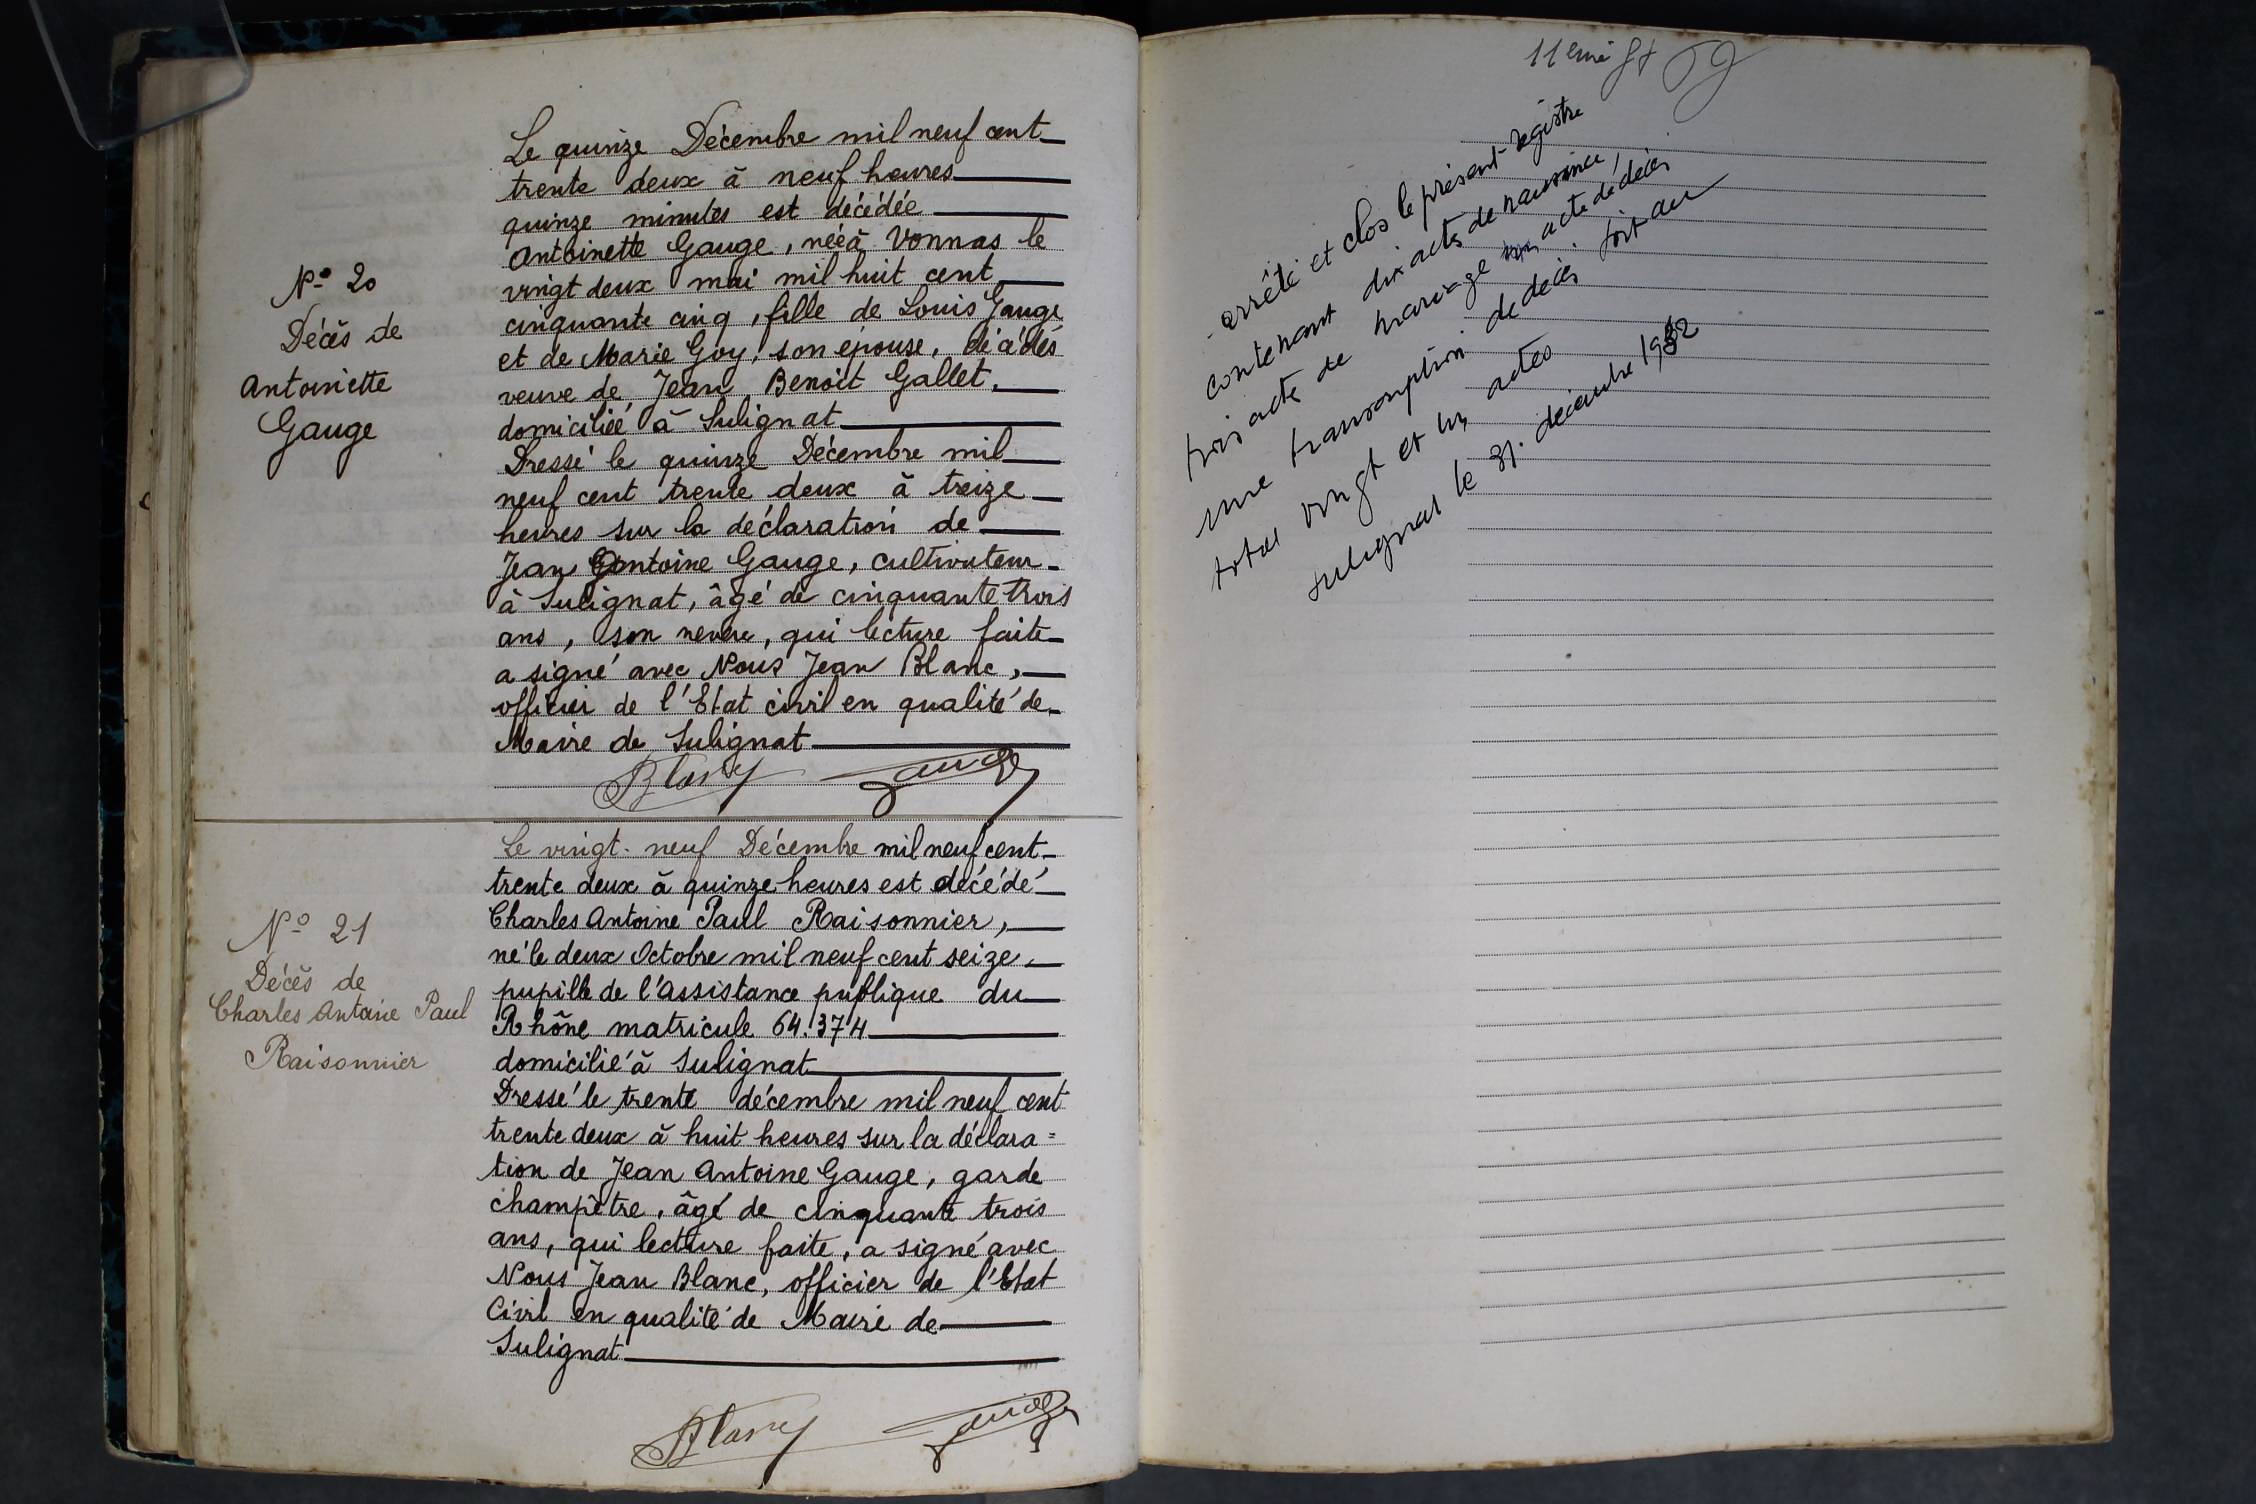 Nº 20
Décès de
Antoinette
Gauge
Le quinze Décembre mil neuf cent
trente deux à neuf heures
quinze minutes est décédée
Antoinette Gauge, née à Vonnas le
vingt deux mai mil huit cent
cinquante cinq, fille de Louis Gauge
et de Marie Goy, son épouse, décédés
veuve de Jean Benoit Gallet,
domiciliée à Sulignat
Dressé le quinze Décembre mil
neuf cent trente deux à treize
heures sur la déclaration de
Jean Antoine Gauge, cultivateur
à Sulignat, âgé de cinquante trois
ans, son neveu, qui lecture faite
a signé avec Nous Jean Blanc,
officier de l'Etat civil en qualité de
Maire de Sulignat
Blanc Gauge
Nº 21
Décès de
Charles Antoine Paul
Raisonnier
Le vingt-neuf Décembre mil neuf cent
trente deux à quinze heures est décédé
Charles Antoine Paul Raisonnier,
né le deux Octobre mil neuf cent seize,
pupille de l'Assistance publique du
Rhône matricule 64.374
domicilié à Sulignat
Dressé le trente décembre mil neuf cent
trente deux à huit heures sur la déclara=
tion de Jean Antoine Gauge, garde
champêtre, âgé de cinquante trois
ans, qui lecture faite, a signé avec
Nous Jean Blanc, officier de l'Etat
Civil en qualité de Maire de
Sulignat
Blanc Gauge
11eme
arrêté et clos le présent registre
contenant dix actes de naissance,
trois acte de mariage acte de décès
une transcription de décès. soit au
total vingt et un actes
Sulignat le 31. décembre 1932